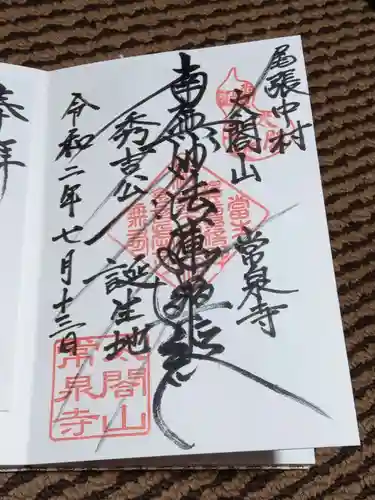 尾張中村
太閤山 常泉寺
南無妙法蓮華経
秀吉公 誕生地
令和二年七月十三日
太閤山
常泉寺
奉拝